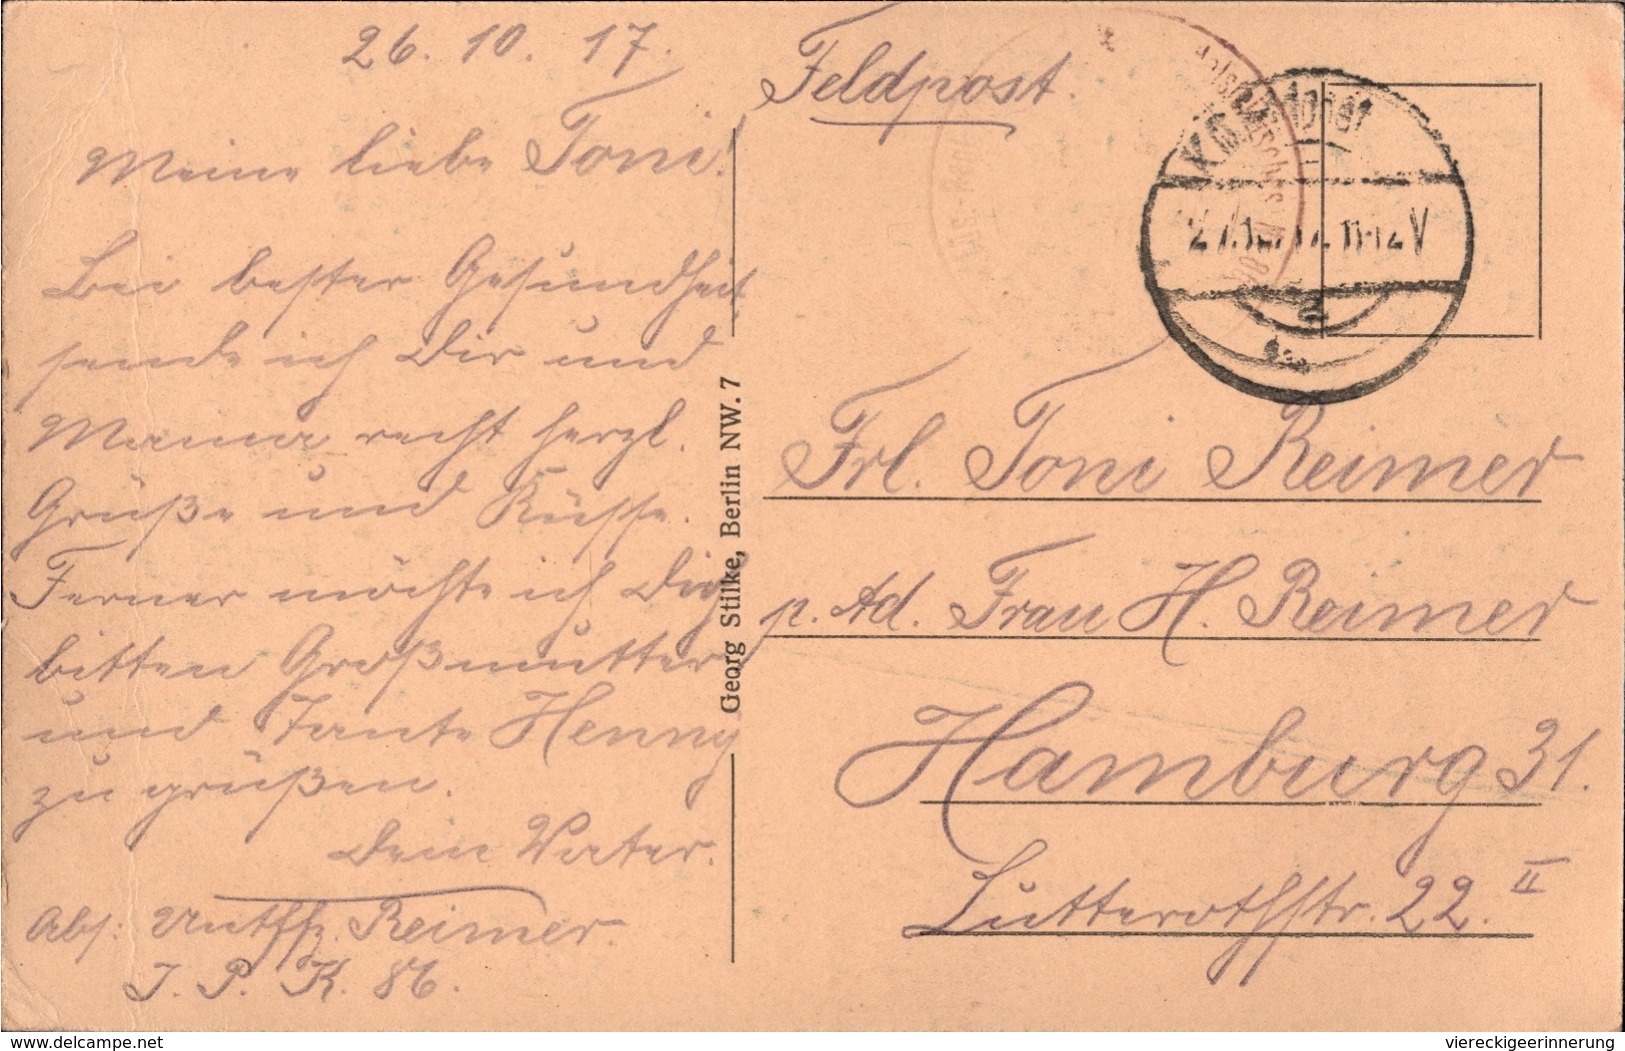 26. 10. 17.
Meine liebe Toni!
Bei bester Gesundheit
sende ich Dir und
Mama recht herzl.
Grüße und Küsse.
Ferner möchte ich Dich
bitten Großmutter
und Tante Henny
zu grüßen.
Dein Vater.
Abs: Untffz. Reimer.
J. P. K. 86.
Georg Stilke, Berlin NW. 7
Feldpost.
11-12V
Frl. Toni Reimer
p. Ad. Frau H. Reimer
Hamburg 31.
Lutterothstr. 22. II
delcampe.net
viereckigeerinnerung